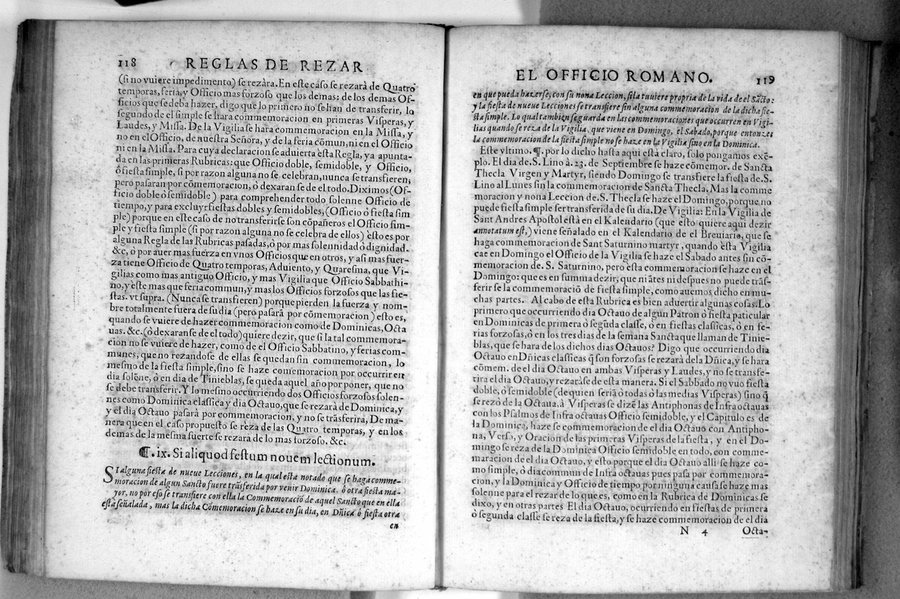 118 REGLAS DE REZAR
(si no vuiere impedimento) se rezàra. En este caso se rezarà de Quatro
temporas, feria, y Officio mas forzoso que los demas: de los demas Of-
ficios que se deba hazer, digo que lo primero no se han de transferir, lo
segundo de el simple se hara commemoracion en primeras Visperas, y
Laudes, y Missa. De la Vigilia se hara commemoracion en la Missa, y
no en el Officio, de nuestra Señora, y de la feria comun, ni en el Officio
ni en la Missa. Para cuya declaracion se aduierta esta Regla, ya apunta-
da en las primeras Rubricas: que Officio doble, semidoble, y Officio,
ò fiesta simple, si por razon alguna no se celebran, nunca se transfieren,
pero pasaran por cõmemoracion, ò dexaran se de el todo. Diximos (Of-
ficio doble ò semidoble) para comprehender todo solenne Officio de
tiempo, y para excluyr fiestas dobles y semidobles, (Officio ò fiesta sim
ple) porque en este caso de no transferirse son cõpañeros el Officio sim-
ple y fiesta simple (si por razon alguna no se celebra de ellos) esto es por
alguna Regla de las Rubricas pasadas, ò por mas solennidad ò dignidad.
&c, ò por auer mas fuerza en vnos Officios que en otros, y asi mas fuer-
za tiene Officio de Quatro temporas, Aduiento, y Quaresma, que Vi-
gilias como mas antiguo Officio, y mas Vigilia que Officio Sabbathi-
no, y este mas que feria commun, y mas los Officios forzosos que las fie-
stas. vt supra. (Nunca se transfieren) porque pierden la fuerza y nom-
bre totalmente fuera de su dia (pero pasarà por cõmemoracion) esto es,
quando se vuiere de hazer commemoracion como de Dominicas, Octa
uas. &c. (ò dexaran se de el todo) quiere dezir, que si la tal commemora-
cion no se vuiere de hazer, como de el Officio Sabbatino, y ferias com-
munes, que no rezandose de ellas se quedan sin commemoracion, lo
mesmo de la fiesta simple, sino se haze commemoracion por occurrir en
dia solẽne, ò en dia de Tinieblas, se queda aquel año por poner, que no
se debe transferir. Y lo mesmo occurriendo dos Officios forzosos solen-
nes como Dominica classica y dia Octauo, que se rezarà de Dominica, y
y el dia Octauo pasarà por commemoracion, y no se trãsferirà, De ma-
nera que en el caso propuesto se reza de las Quatro temporas, y en los
demas de la mesma fuerte se rezara de lo mas forzoso, &c.
¶. ix. Si aliquod festum nouem lectionum.
SI alguna fiesta de nueue Lecciones, en la qual esta notado que se haga comme-
moracion de algun Sancto fuere trãsferida por venir Dominica. ò otra fiesta ma-
yor, no por eso se transfiere con ella la Commemoraciõ de aquel Sancto que en ella
està señalada, mas la dicha Cõmemoracion se haze en su dia, en Dñica ò fiesta otra
en
EL OFFICIO ROMANO. 119
en que pueda hazerse, con su nona Leccion, si la tuuiere propria de la vida de el Sãcto:
y la fiesta de nueue Lecciones se transfiere sin alguna commemoracion de la dicha fie-
sta simple. Lo qual tambien se guarda en las commemoraciones que occurren en Vigi-
lias quando se reza de la Vigilia, que viene en Domingo, el Sabado, porque entonces
la commemoracion de la fiesta simple no se haze en la Vigilia sino en la Dominica.
Este vltimo. ¶. por lo dicho hasta aqui està claro, solo pongamos exẽ-
plo. El dia de S. Lino à 23. de Septiembre se haze cõmemor. de Sancta
Thecla Virgen y Martyr, siendo Domingo se transfiere la fiesta de S.
Lino al Lunes sin la commemoracion de Sancta Thecla, Mas la comme
moracion y nona Leccion de S. Thecla se haze el Domingo, porque no
puede fiesta simple ser transferida de su dia. De Vigilia: En la Vigilia de
Sant Andres Apostol està en el Kalendario (que esto quiere aqui dezir
annotatum est,) viene señalado en el Kalendario de el Breuiario, que se
haga commemoracion de Sant Saturnino martyr, quando esta Vigilia
cae en Domingo el Officio de la Vigilia se haze el Sabado antes sin cõ-
memoracion de. S. Saturnino, pero esta commemoracion se haze en el
Domingo: que es en summa dezir, que ni ãtes ni despues no puede trãs-
ferir se la commemoraciõ de fiesta simple, como auemos dicho en mu-
chas partes. Al cabo de esta Rubrica es bien aduertir algunas cosas. Lo
primero que occurriendo dia Octauo de algun Patron ò fiesta paticular
en Dominicas de primera ò segũda classe, ò en fiestas classicas, ò en fe-
rias forzosas, ò en los tres dias de la semana Sancta que llaman de Tinie-
blas, que se hara de los dichos dias Octauos? Digo que occurriendo dia
Octauo en Dñicas classicas q̃ son forzosas se rezarà de la Dñica, y si harà
cõmem. de el dia Octauo en ambas Visperas y Laudes, y no se transfe-
rirà el dia Octauo, y rezaràse de esta manera. Si el Sabbado no vuo fiesta
doble, ò semidoble (de quien serià ò todas ò las medias Visperas) sino q̃
se rezò de la Octaua. à Visperas se dizẽ las Antiphonas de Infra octauas
con los Psalmos de Infra octauas Officio semidoble, y el Capitulo es de
la Dominica, haze se commemoracion de el dia Octauo con Antipho-
na, Verso, y Oracion de las primeras Visperas de la fiesta, y en el Do-
mingo se reza de la Dominica Officio semidoble en todo, con comme-
moracion de el dia Octauo, y esto porque el dia Octauo alli se haze co-
mo simple, ò dia commun de Infra octauas pues pasa por commemora-
cion, y la Dominica y Officio de tiempo por ninguna causa se haze mas
solenne para el rezar de lo que es, como en la Rubrica de Dominicas se
dixo, y en otras partes El dia Octauo, ocurriendo en fiestas de primera
ò segunda classe se reza de la fiesta, y se haze commemoracion de el dia
N 4 Octa-